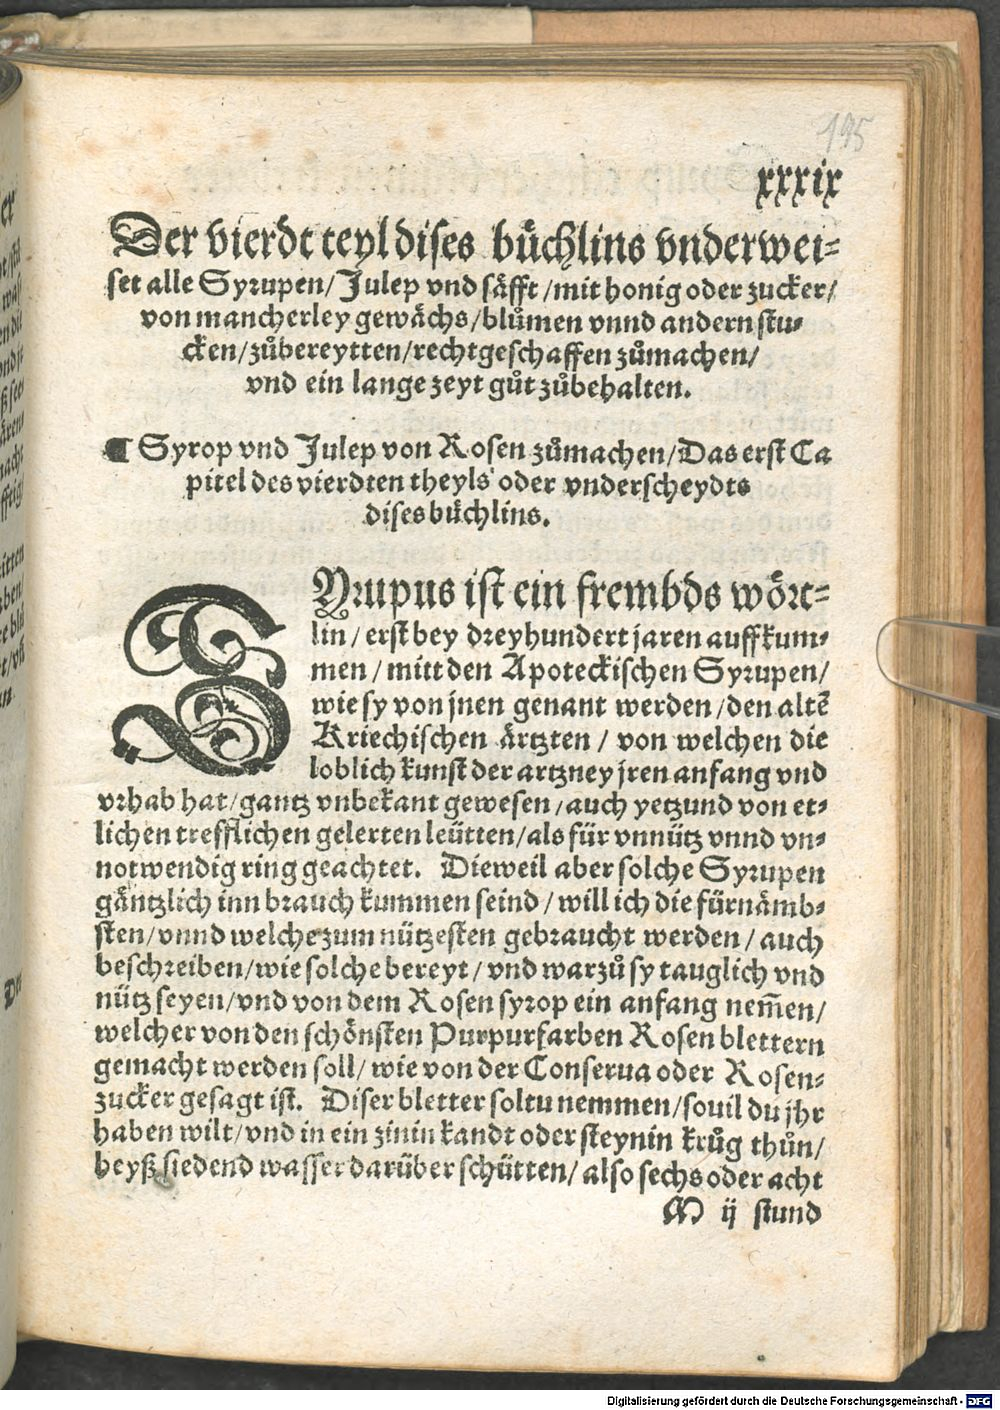 195
xxxix
Der vierdt teyl dises bůchlins vnderwei-
set alle Syrupen/ Julep vnd såfft/ mit honig oder zucker/
von mancherley gewåchs/ blůmen vnnd andern stu-
cken/ zůbereytten/ rechtgeschaffen zůmachen/
vnd ein lange zeyt gůt zůbehalten.
¶ Syrop vnd Julep von Rosen zůmachen/ Das erst Ca
pitel des vierdten theyls oder vnderscheydts
dises bůchlins.
SYrupus ist ein frembds wört-
lin/ erst bey dreyhundert jaren auffkum-
men/ mitt den Apoteckischen Syrupen/
wie sy von jnen genant werden/ den altẽ
Kriechischen årtzten/ von welchen die
loblich kunst der artzney jren anfang vnd
vrhab hat/ gantz vnbekant gewesen/ auch yetzund von et-
lichen trefflichen gelerten leütten/ als für vnnütz vnnd vn-
notwendig ring geachtet. Dieweil aber solche Syrupen
gåntzlich inn brauch kummen seind/ will ich die fürnåmb-
sten/ vnnd welche zum nützesten gebraucht werden/ auch
beschreiben/ wie solche bereyt/ vnd warzů sy tauglich vnd
nütz seyen/ vnd von dem Rosen syrop ein anfang nem̃en/
welcher von den schönsten Purpurfarben Rosen blettern
gemacht werden soll/ wie von der Conserua oder Rosen-
zucker gesagt ist. Diser bletter soltu nemmen/ souil du jhr
haben wilt/ vnd in ein zinin kandt oder steynin krůg thůn/
heyß siedend wasser darüber schütten/ also sechs oder acht
M ij stund
Digitalisierung gefördert durch die Deutsche Forschungsgemeinschaft - DFG